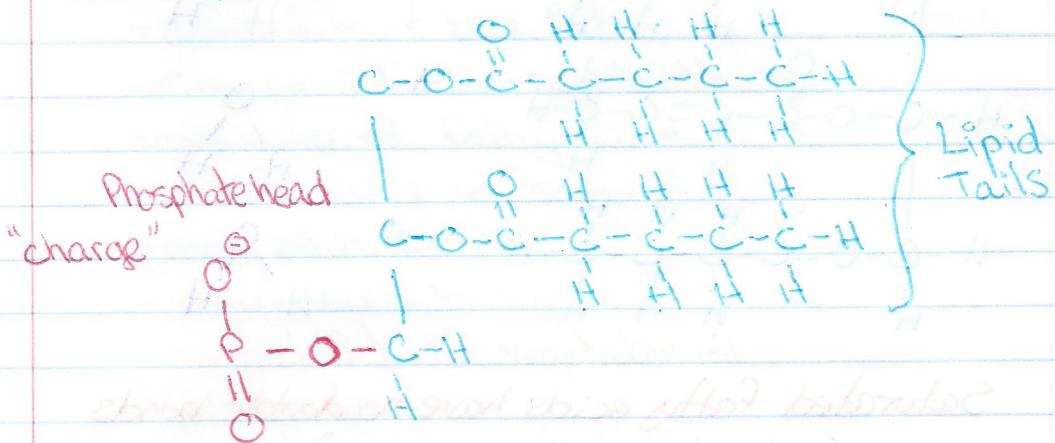 O H H H H
C-O-C-C-C-C-C-H
H H H H
Lipid
Tails
Phosphate head
"charge"
O H H H H
C-O-C-C-C-C-C-H
H H H H
⊖
O
P-O-C-H
H
O